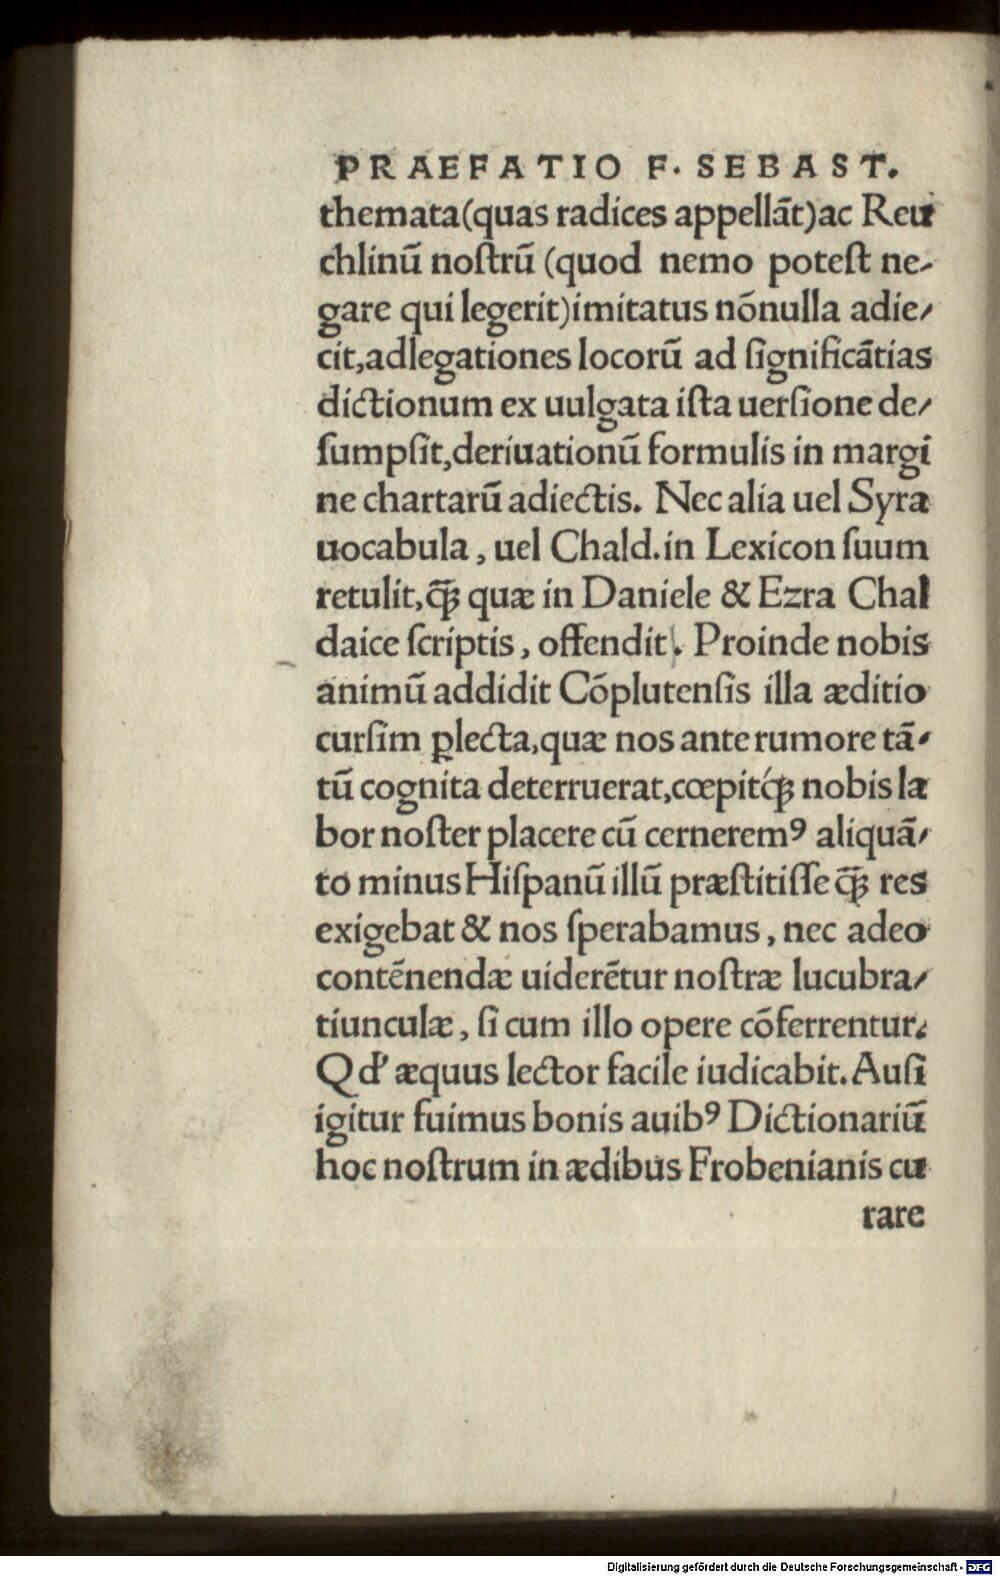 PRAEFATIO F. SEBAST.
themata(quas radices appellãt)ac Reu
chlinũ noſtrũ (quod nemo poteſt ne-
gare qui legerit)imitatus nõnulla adie/
cit,adlegationes locorũ ad ſignificãtias
dictionum ex uulgata iſta uerſione de/
ſumpſit,deriuationũ formulis in margi
ne chartarũ adiectis. Nec alia uel Syra
uocabula, uel Chald.in Lexicon ſuum
retulit,q̃ꝫ quæ in Daniele & Ezra Chal
daice ſcriptis, offendit. Proinde nobis
animũ addidit Cõplutenſis illa æditio
curſim ꝑlecta,quæ nos ante rumore tã/
tũ cognita deterruerat,cœpitq́ꝫ nobis la
bor noſter placere cũ cernerem⁹ aliquã/
to minus Hiſpanũ illũ præſtitiſſe q̃ꝫ res
exigebat & nos ſperabamus, nec adeo
contẽnendæ uiderẽtur noſtræ lucubra/
tiunculæ, ſi cum illo opere cõferrentur.
Qd' æquus lector facile iudicabit. Auſi
igitur fuimus bonis auib⁹ Dictionariũ
hoc noſtrum in ædibus Frobenianis cu
rare
Digitalisierung gefördert durch die Deutsche Forschungsgemeinschaft - DFG